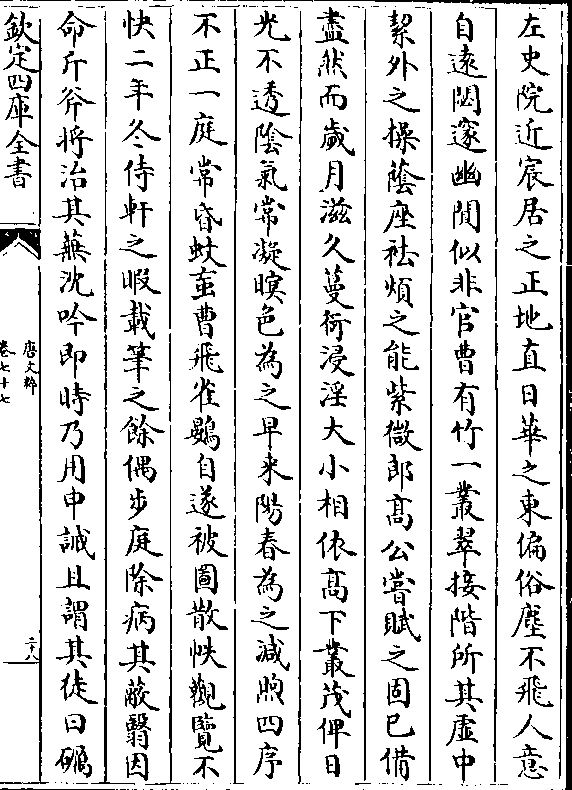 左史院近宸居之正地直日華之東偏俗塵不飛人意
自遠閎邃幽閒似非官曹有竹一叢翠接階所其虛中
絜外之操蔭座袪煩之能紫微郎髙公嘗賦之固已備
盡然而嵗月滋久蔓衍浸淫大小相依髙下叢茂俾日
光不透陰氣常凝暝色為之早来陽春為之減煦四序
不正一庭常昏蚊䖟曹飛雀鷃自遂被圖散帙觀覽不
快二年冬侍軒之暇載筆之餘偶步庭除病其蔽翳因
命斤斧將治其蕪沈吟即時乃用申誡且謂其徒曰碼
欽定四庫全書
唐文粹
卷七十七
二十八